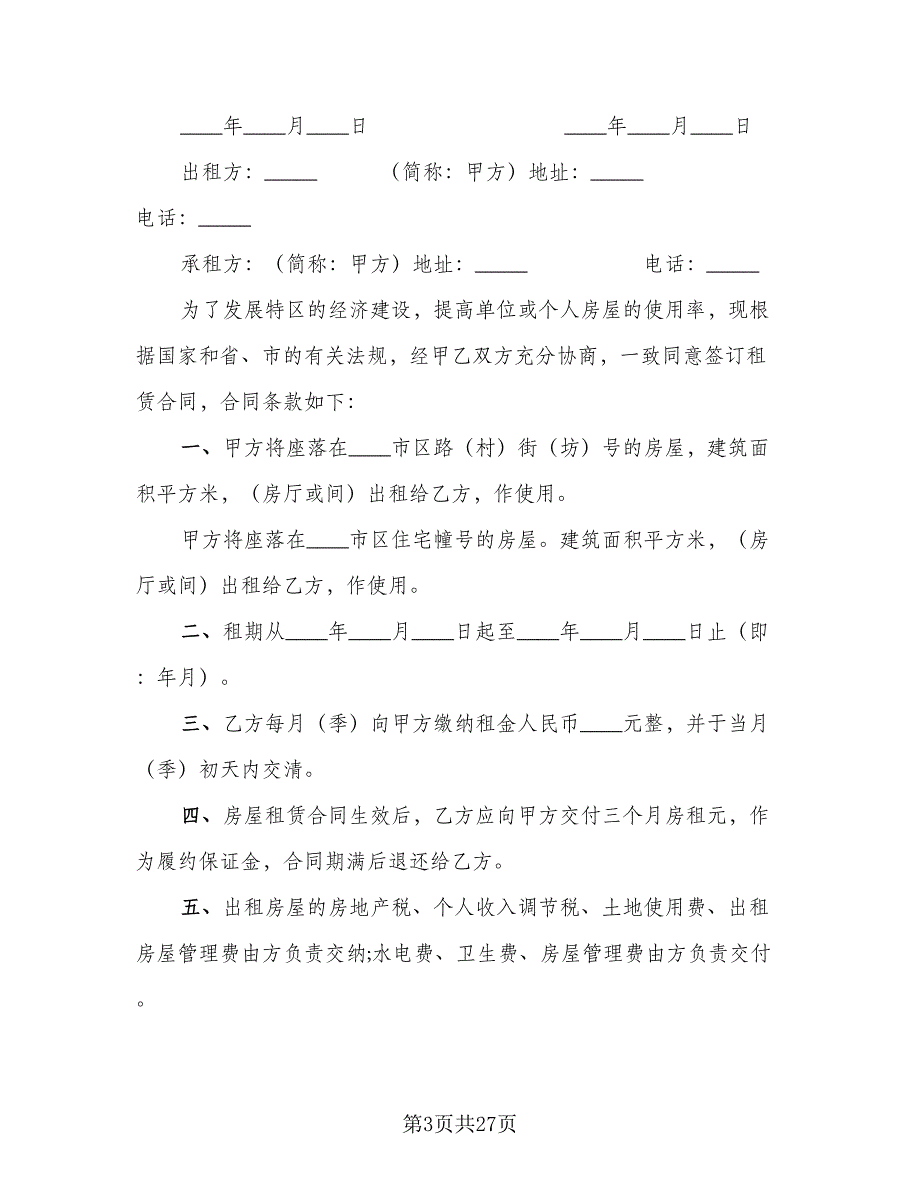 ____年____月____日 ____年____月____日
出租方：_____ （简称：甲方）地址：_____
电话：_____
承租方：（简称：甲方）地址：_____ 电话：_____
为了发展特区的经济建设，提高单位或个人房屋的使用率，现根
据国家和省、市的有关法规，经甲乙双方充分协商，一致同意签订租
赁合同，合同条款如下：
一、甲方将座落在____市区路（村）街（坊）号的房屋，建筑面
积平方米，（房厅或间）出租给乙方，作使用。
甲方将座落在____市区住宅幢号的房屋。建筑面积平方米，（房
厅或间）出租给乙方，作使用。
二、租期从____年____月____日起至____年____月____日止（即
：年月）。
三、乙方每月（季）向甲方缴纳租金人民币____元整，并于当月
（季）初天内交清。
四、房屋租赁合同生效后，乙方应向甲方交付三个月房租元，作
为履约保证金，合同期满后退还给乙方。
五、出租房屋的房地产税、个人收入调节税、土地使用费、出租
房屋管理费由方负责交纳;水电费、卫生费、房屋管理费由方负责交付
。
第3页共27页